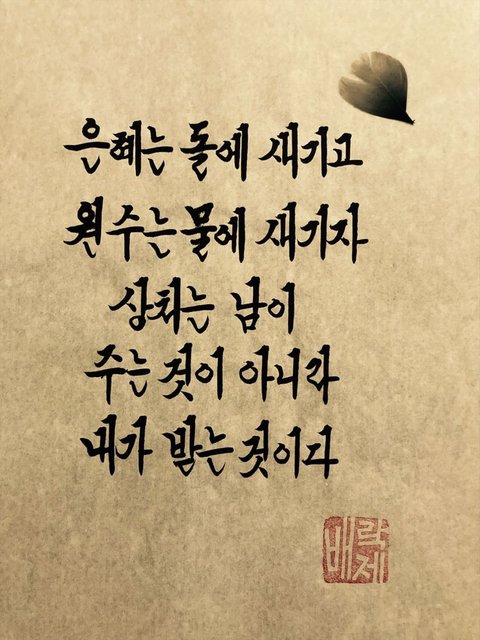 은혜는 돌에 새기고
원수는 물에 새기자
상처는 남이
주는 것이 아니라
내가 받는 것이다
배락제